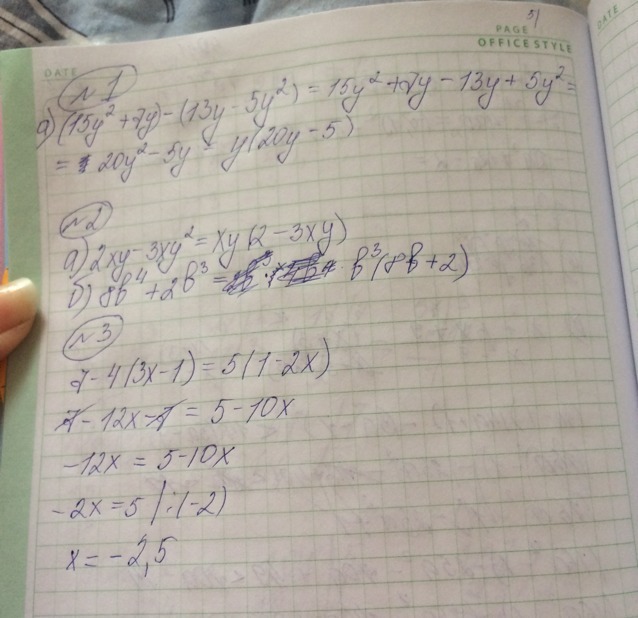 5/
PAGE
OFFICE STYLE
DATE
DATE
№1
а) (15y² + 7y) - (13y - 5y²) = 15y² + 7y - 13y + 5y² =
= 20y² - 5y = y(20y - 5)
№2
а) 2xy - 3xy² = xy(2 - 3xy)
б) 8b⁴ + 2b³ = b³(8b + 2)
№3
7 - 4(3x - 1) = 5(1 - 2x)
- 12x - = 5 - 10x
-12x = 5 - 10x
-2x = 5 | : (-2)
x = -2,5